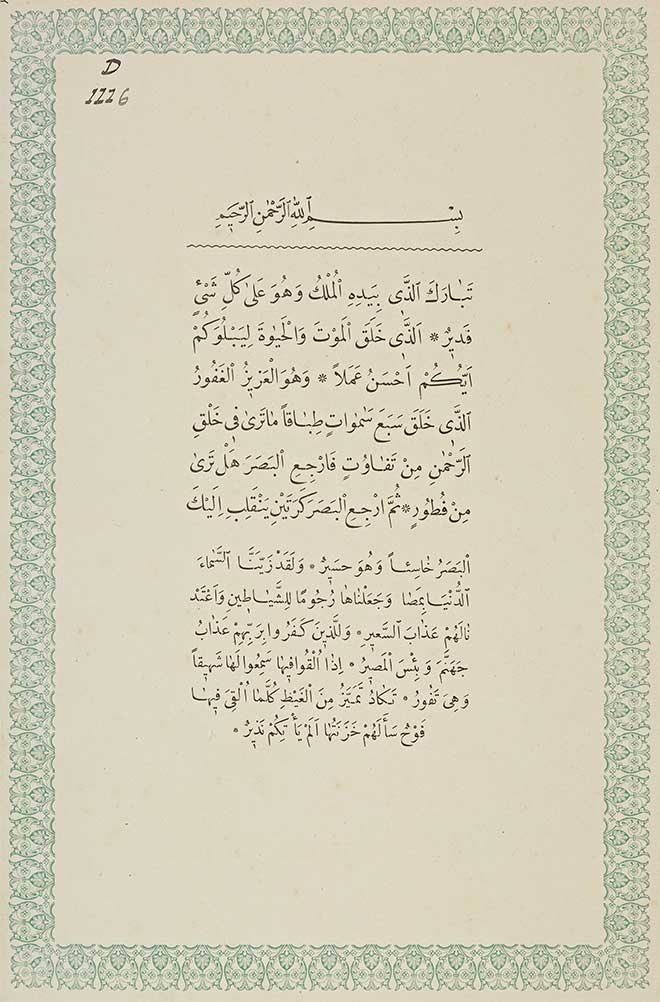 D
1226
بِسْمِ اللهِ الرَّحْمٰنِ الرَّحِيمِ
تَبَارَكَ الَّذٖى بِيَدِهِ الْمُلْكُ وَهُوَ عَلٰى كُلِّ شَىْءٍ
قَدٖيرٌ * اَلَّذٖى خَلَقَ الْمَوْتَ وَالْحَيٰوةَ لِيَبْلُوَكُمْ
اَيُّكُمْ اَحْسَنُ عَمَلاً * وَهُوَ الْعَزٖيزُ الْغَفُورُ
الَّذٖى خَلَقَ سَبَعَ سَمٰوَاتٍ طِبَاقاً مَا تَرٰى فٖى خَلْقِ
الرَّحْمٰنِ مِنْ تَفَاوُتٍ فَارْجِعِ الْبَصَرَ هَلْ تَرٰى
مِنْ فُطُورٍ * ثُمَّ ارْجِعِ الْبَصَرَ كَرَّتَيْنِ يَنْقَلِبِ اِلَيْكَ
الْبَصَرُ خَاسِئاً وَهُوَ حَسٖيرٌ * وَلَقَدْ زَيَّنَّا السَّمَاءَ
الدُّنْيَا بِمَصَا وَجَعَلْنَاهَا رُجُومًا لِلشَّيَاطٖينِ وَاَعْتَدْ
نَا لَهُمْ عَذَابَ السَّعٖيرِ * وَلِلَّذٖينَ كَفَرُوا بِرَبِّهِمْ عَذَابُ
جَهَنَّمَ وَبِئْسَ الْمَصٖيرُ * اِذَا اُلْقُوا فٖيهَا سَمِعُوا لَهَا شَهٖيقاً
وَهِىَ تَفُورُ * تَكَادُ تَمَيَّزُ مِنَ الْغَيْظِ كُلَّمَا اُلْقِىَ فٖيهَا
فَوْجٌ سَأَلَهُمْ خَزَنَتُهَا اَلَمْ يَأْتِكُمْ نَذٖيرٌ *